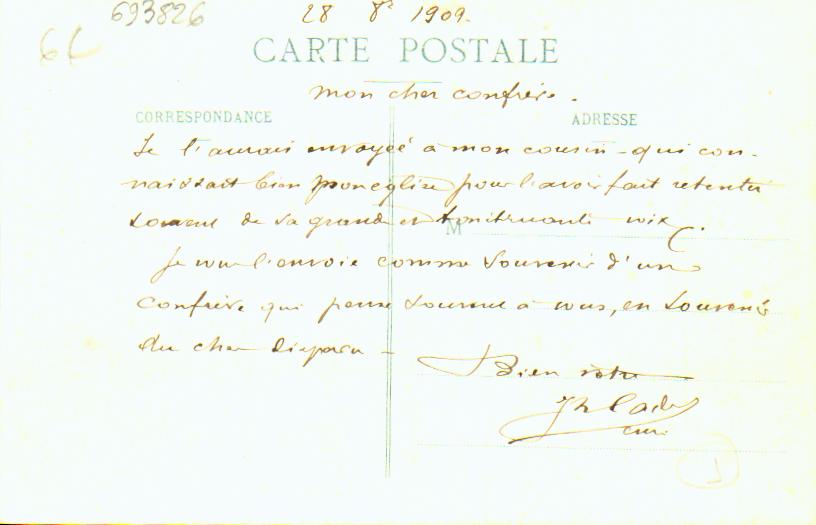 693826
28 8e 1909.
CARTE POSTALE
Mon cher confrère.
CORRESPONDANCE
ADRESSE
Je l'aurais envoyée à mon cousin - qui con-
naissait bien mon église pour l'avoir fait retentir
souvent de sa grande et tonitruante voix.
M
Je vous l'envoie comme souvenir d'un
confrère qui pense souvent à vous, en souvenir
du cher disparu -
Bien vôtre
curé